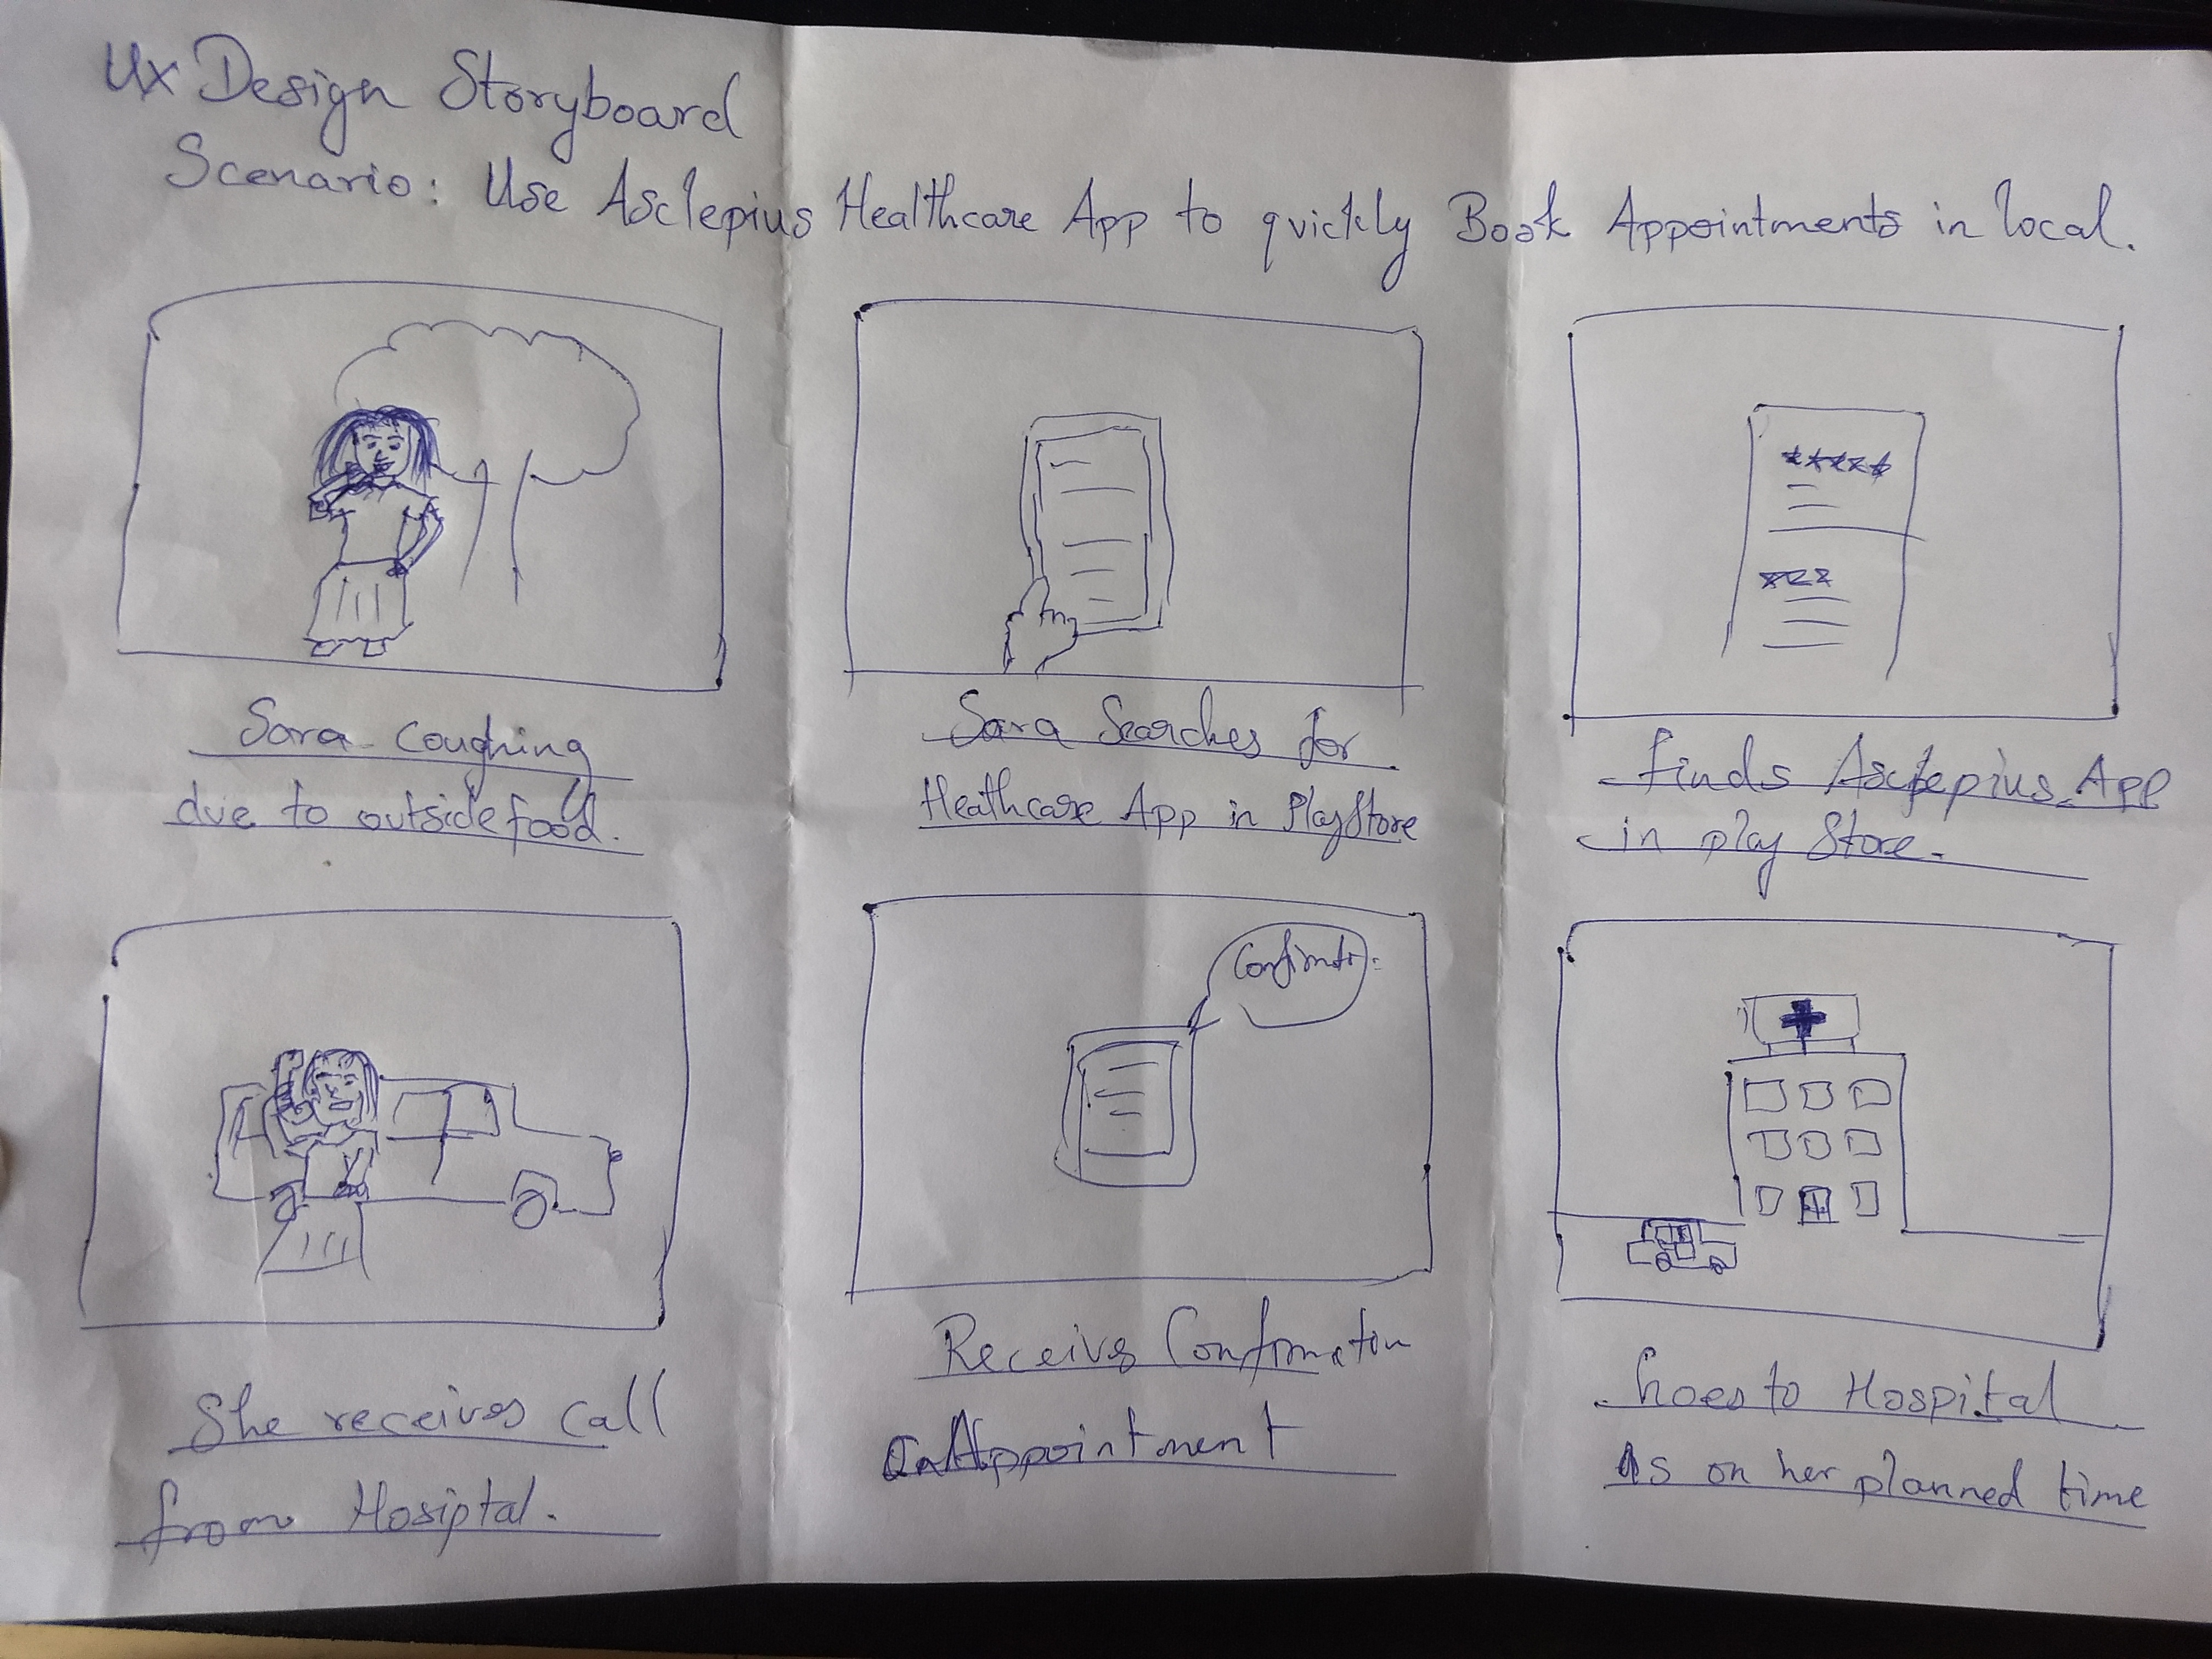 Ux Design Storyboard
Scenario: Use Asclepius Healthcare App to quickly Book Appointments in local.
Sara coughing
due to outside food.
Sara Searches for
Heathcare App in PlayStore
finds Asclepius App
in play Store.
She receives call
from Hosiptal.
Receives Confirmation
On Appointment
Goes to Hospital
As on her planned time